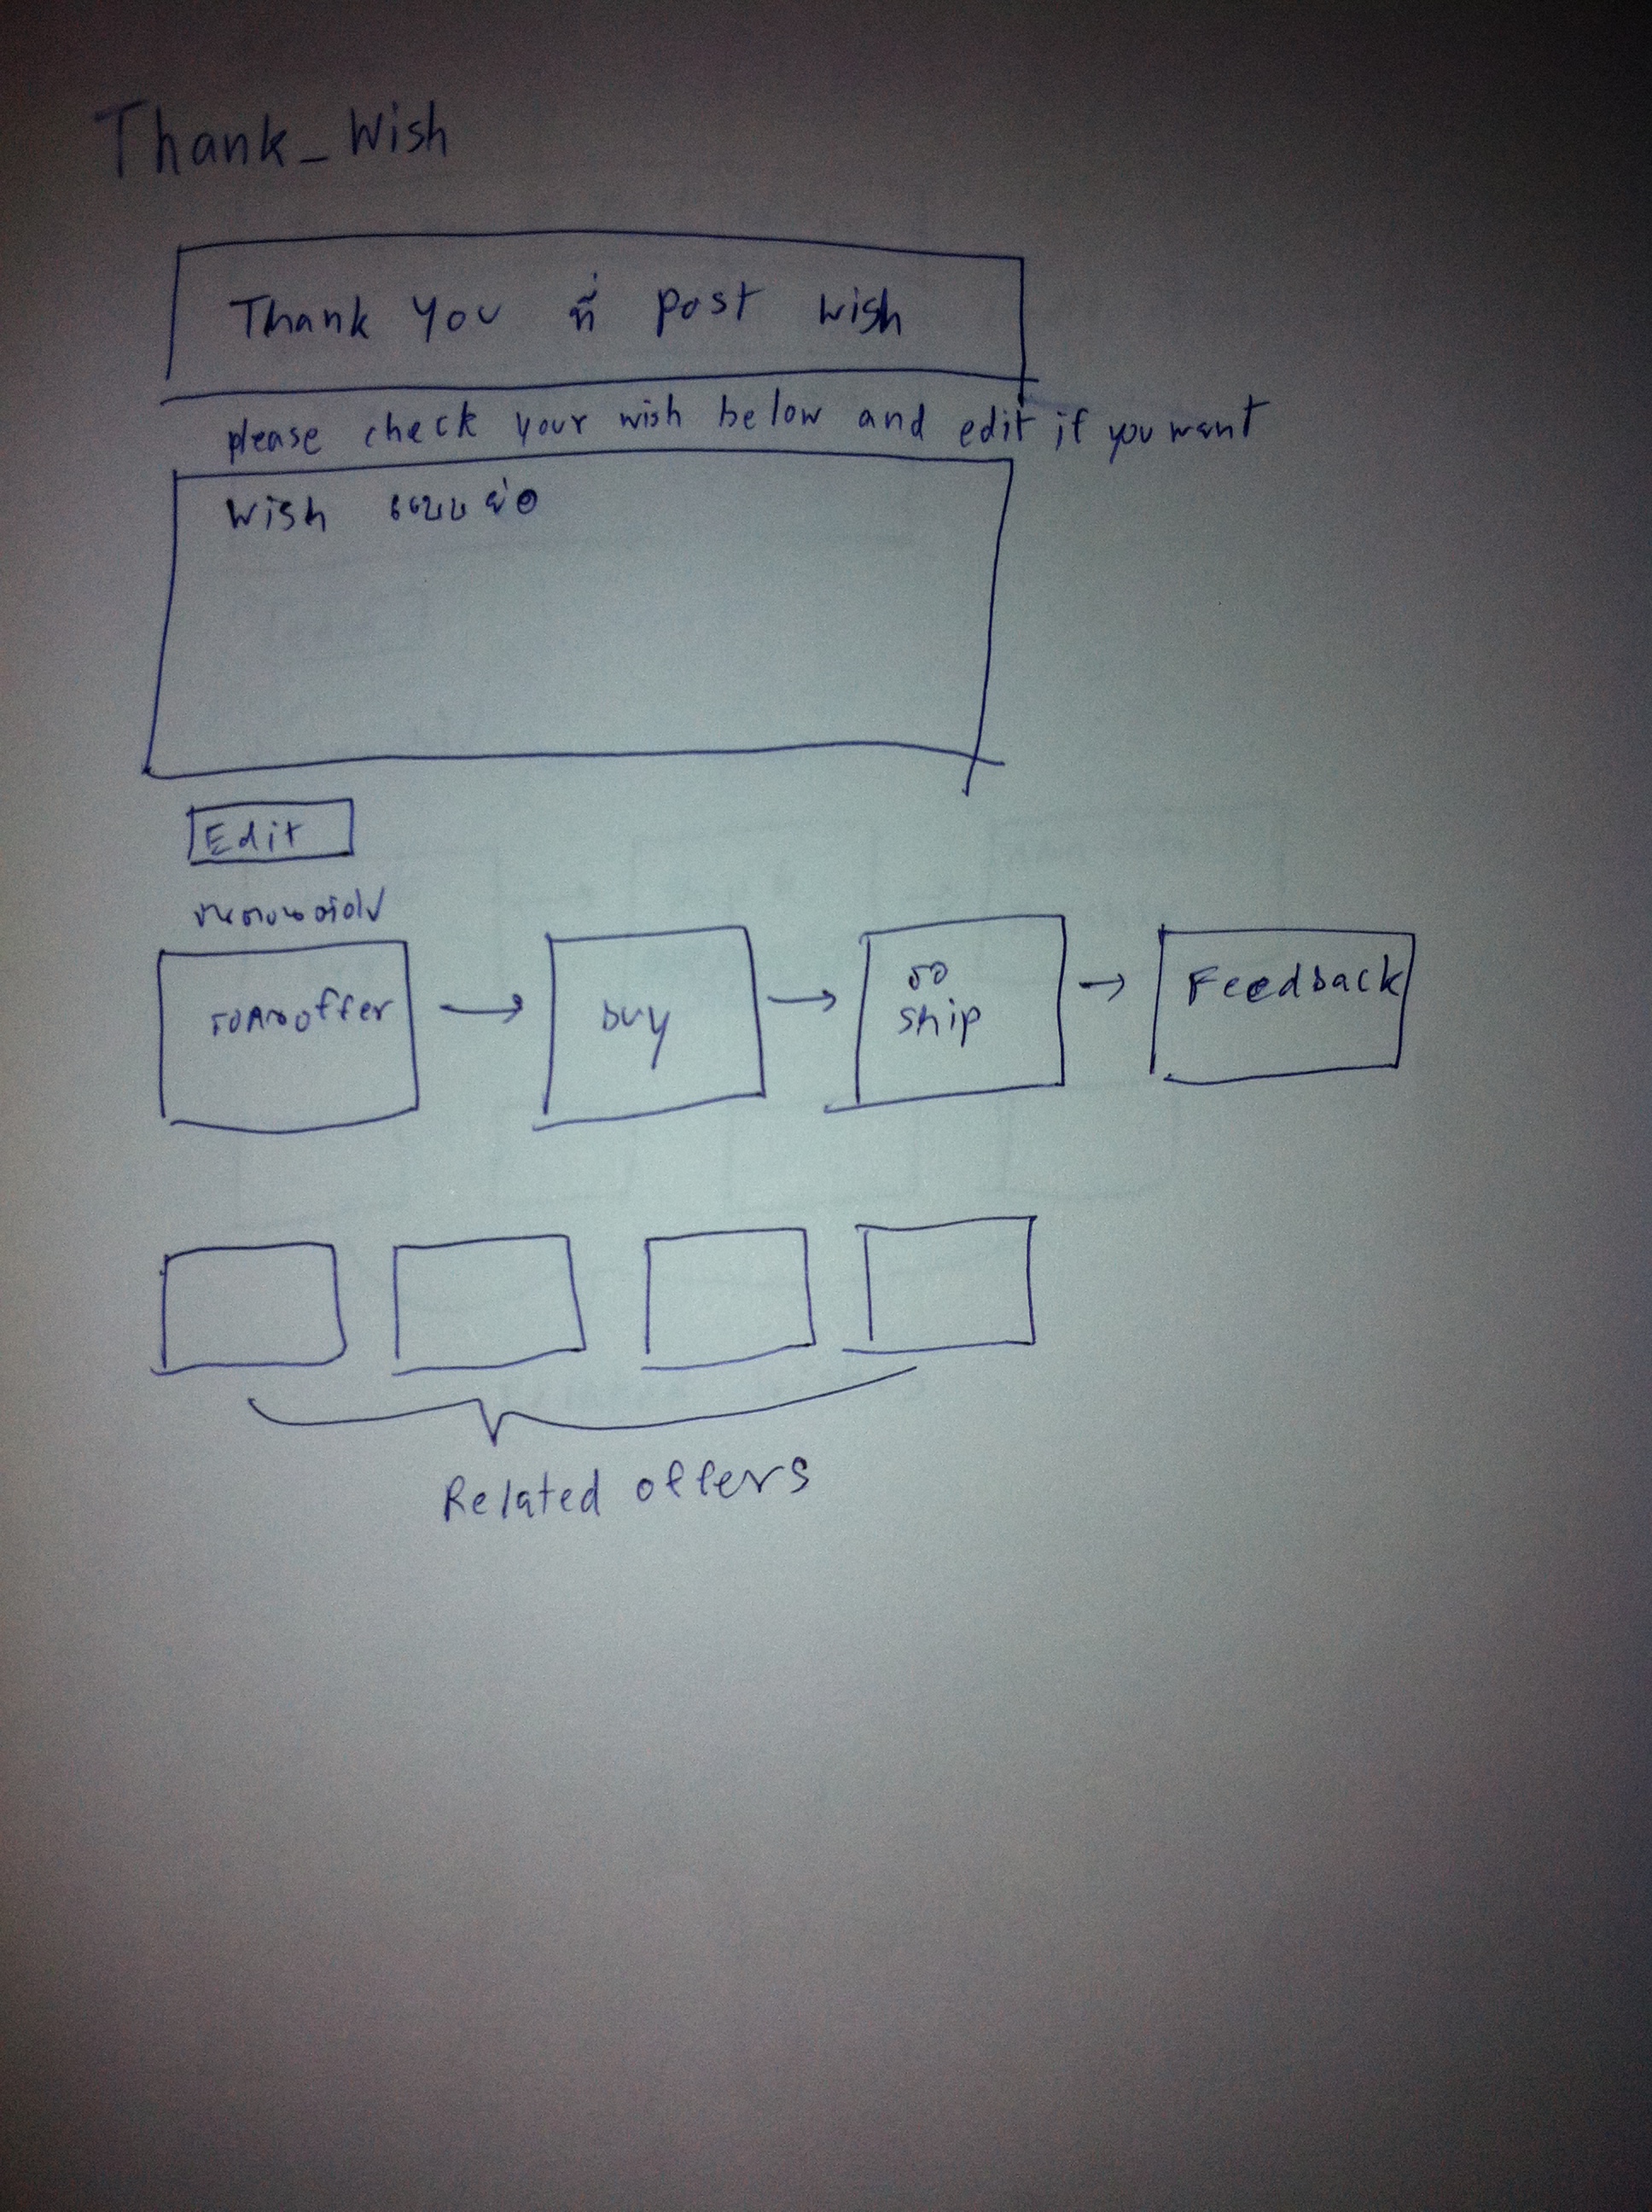 Thank_Wish
Thank You ที่ post wish
please check your wish below and edit if you want
Wish แบบย่อ
Edit
ขั้นตอนต่อไป
รอคนoffer
buy
รอ
ship
Feedback
Related offers